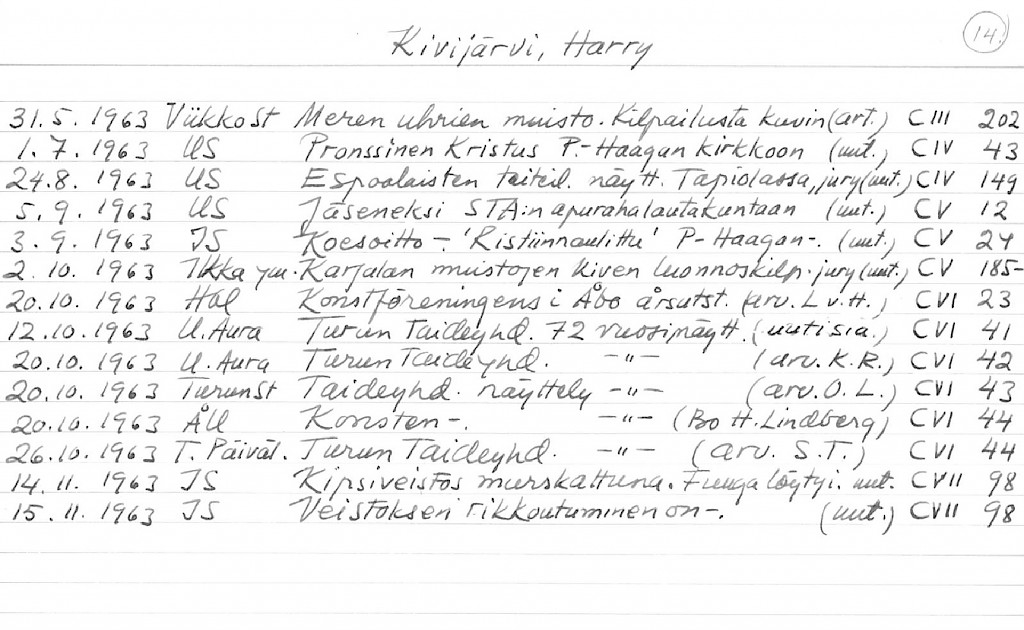 14.
Kivijärvi, Harry
31.5.1963 ViikkoSt Meren uhrien muisto. Kilpailusta kuvin (art.) CIII 202
1.7.1963 US Pronssinen Kristus P.-Haagan kirkkoon (uut.) CIV 43
24.8.1963 US Espoolaisten taiteil. näytt. Tapiolassa, jury (uut.) CIV 149
5.9.1963 US Jäseneksi STA:n apurahalautakuntaan (uut.) CV 12
3.9.1963 IS Koesoitto –, 'Ristiinnaulittu' P-Haagan-. (uut.) CV 24
2.10.1963 Ilkka ym. Karjalan muistojen kiven luonnoskilp. jury (uut.) CV 185-
20.10.1963 Hbl Konstföreningens i Åbo årsutst. (arv. L v. H.) CVI 23
12.10.1963 U. Aura Turun Taideyhd. 72 vuosinäytt. (uutisia.) CVI 41
20.10.1963 U. Aura Turun Taideyhd. –"– (arv. K.R.) CVI 42
20.10.1963 TurunSt Taideyhd. näyttely –"– (arv. O.L.) CVI 43
20.10.1963 ÅU Konsten –. –"– (Bo H. Lindberg) CVI 44
26.10.1963 T. Päivät. Turun Taideyhd. –"– (arv. S.T.) CVI 44
14.11.1963 IS Kipsiveistos murskattuna. Fuuga löytyi. uut. CVII 98
15.11.1963 IS Veistoksen rikkoutuminen on –. (uut.) CVII 98